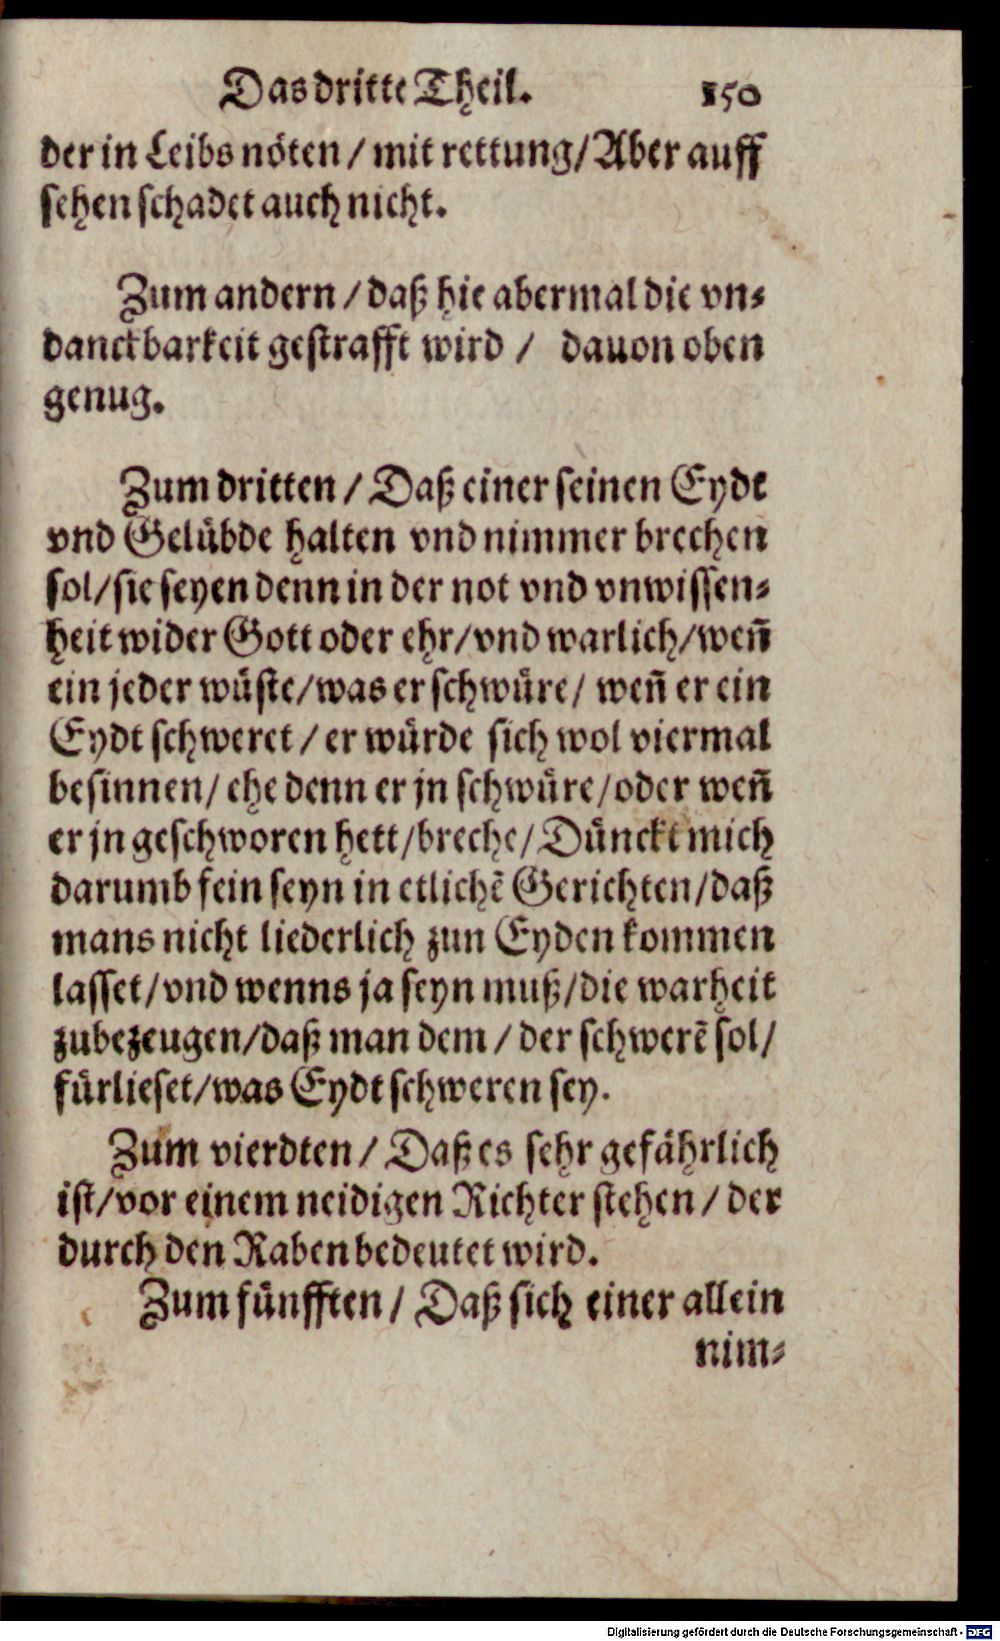 Das dritte Theil. 150
der in Leibs nöten / mit rettung / Aber auff
sehen schadet auch nicht.
Zum andern / daß hie abermal die vn-
danckbarkeit gestrafft wird / dauon oben
genug.
Zum dritten / Daß einer seinen Eydt
vnd Gelübde halten vnd nimmer brechen
sol / sie seyen denn in der not vnd vnwissen-
heit wider Gott oder ehr / vnd warlich / weñ
ein jeder wüste / was er schwüre / weñ er ein
Eydt schweret / er würde sich wol viermal
besinnen / ehe denn er jn schwüre / oder weñ
er jn geschworen hett / breche / Dünckt mich
darumb fein seyn in etlichẽ Gerichten / daß
mans nicht liederlich zun Eyden kommen
lasset / vnd wenns ja seyn muß / die warheit
zubezeugen / daß man dem / der schwerẽ sol /
fürlieset / was Eydt schweren sey.
Zum vierdten / Daß es sehr gefährlich
ist / vor einem neidigen Richter stehen / der
durch den Raben bedeutet wird.
Zum fünfften / Daß sich einer allein
nim-
Digitalisierung gefördert durch die Deutsche Forschungsgemeinschaft - DFG